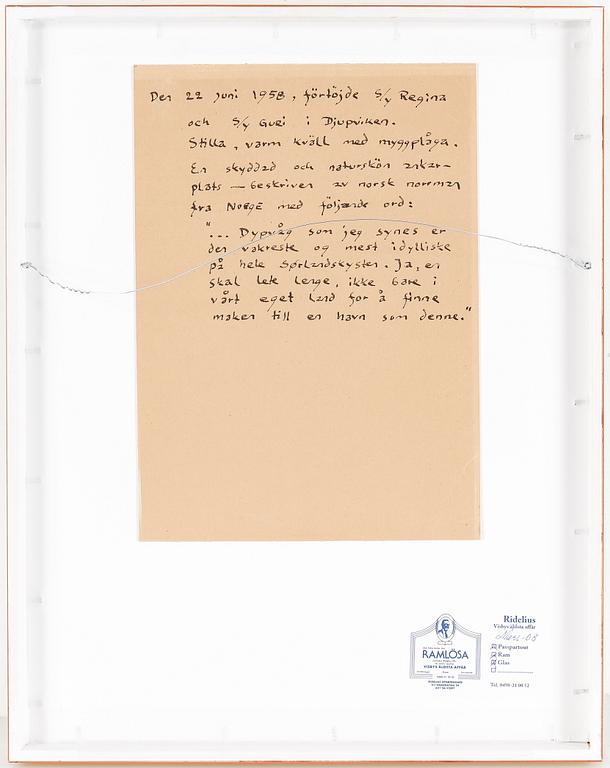 Den 22 juni 1958, förtöjde S/y Regina
och S/y Guei i Djupviken.
Stilla, varm kväll med myggplåga.
En skyddad och naturskön ankar-
plats — beskriven av norsk norman
fra NORGE med följande ord:
"... Dypvåg som jeg synes er
den vakreste og mest idylliske
på hele Sørlandskysten. Ja, en
skal lete lenge, ikke bare i
vårt eget land for å finne
maken till en havn som denne."
Ridelius
Visbys äldsta affär
RAMLÖSA
VISBYS ÄLDSTA AFFÄR
Passpartout
Ram
Glas
Tel. 0498-21 00 12